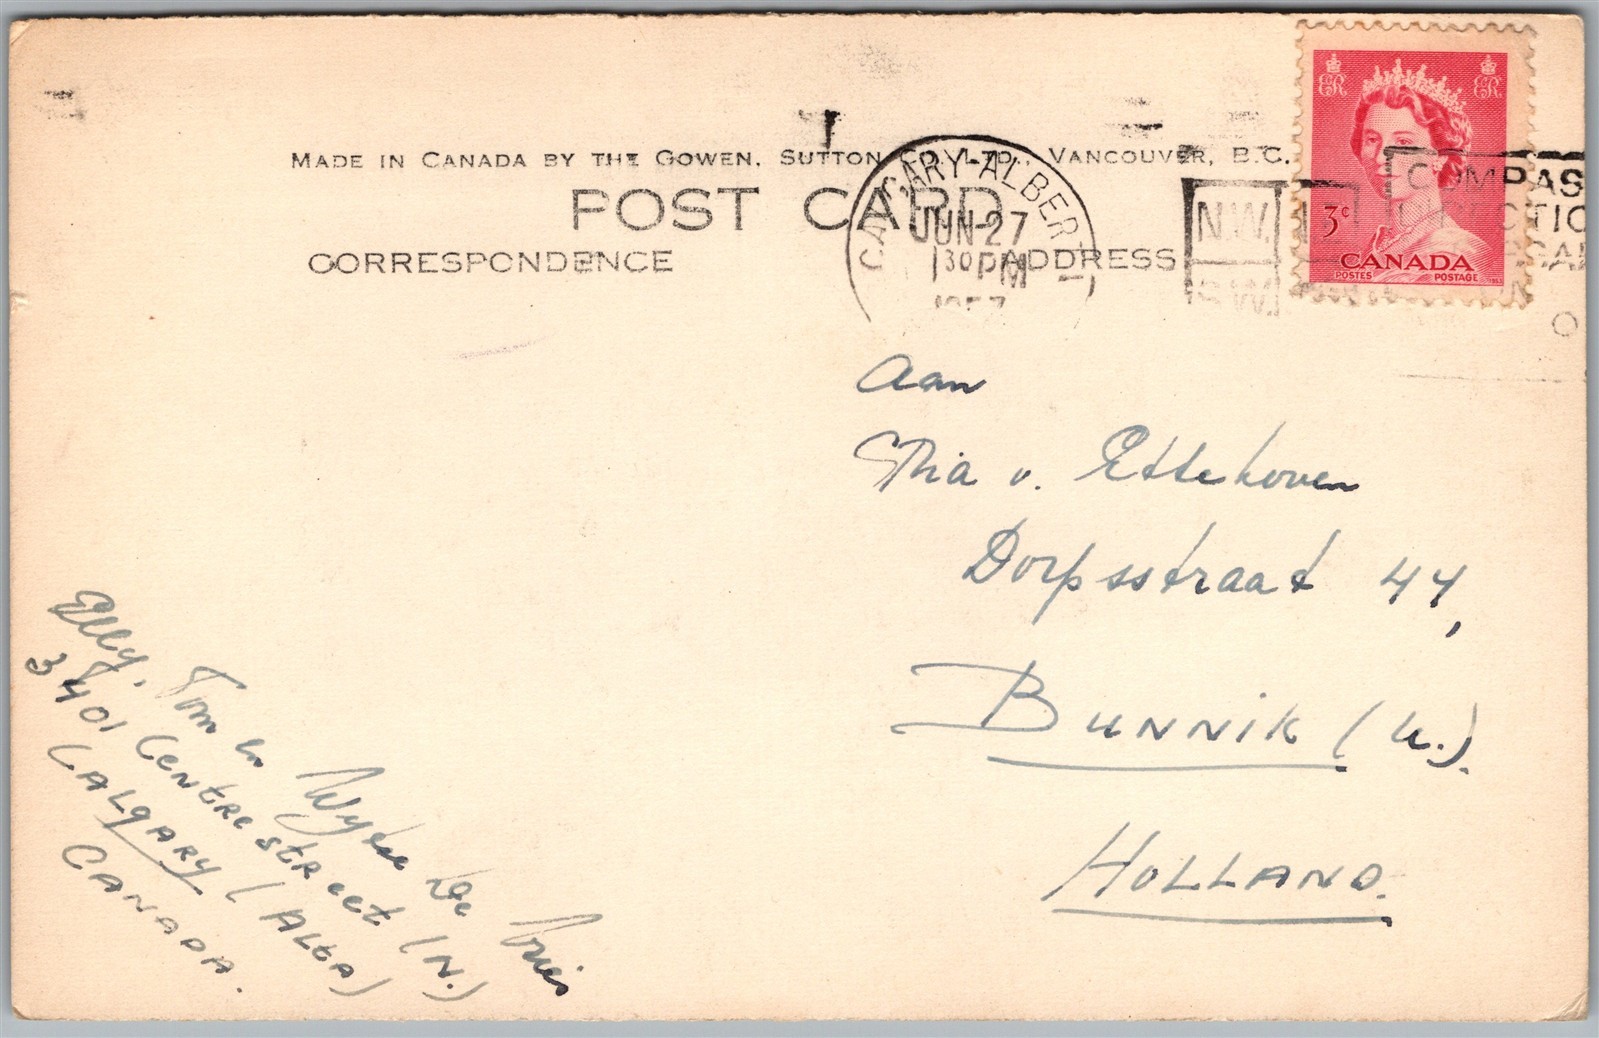 MADE IN CANADA BY THE GOWEN, SUTTON CO. LTD., VANCOUVER, B.C.
POST CARD
CORRESPONDENCE
ADDRESS
CALGARY-ALBERT
JUN-27
130 PM
N.W.
S.W.
COMPAS
ER ER
3¢
CANADA
POSTES POSTAGE
Aan
Mia v. Ettekoven
Dorpsstraat 44,
BUNNIK (U.).
HOLLAND.
Elly, Tom en Wytse De Vries
3401 CENTRE STREET (N.)
CALGARY (ALTA)
CANADA.